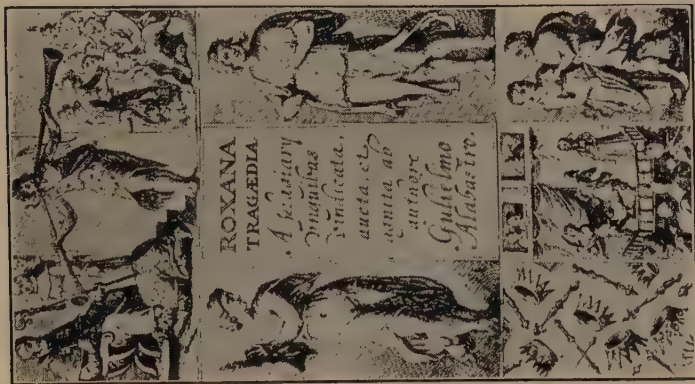 ROXANA
TRAGÆDIA
A plagiarij
unguibus
vindicata,
aucta, et
agnita ab
Authore
Gulielmo
Alabastro.